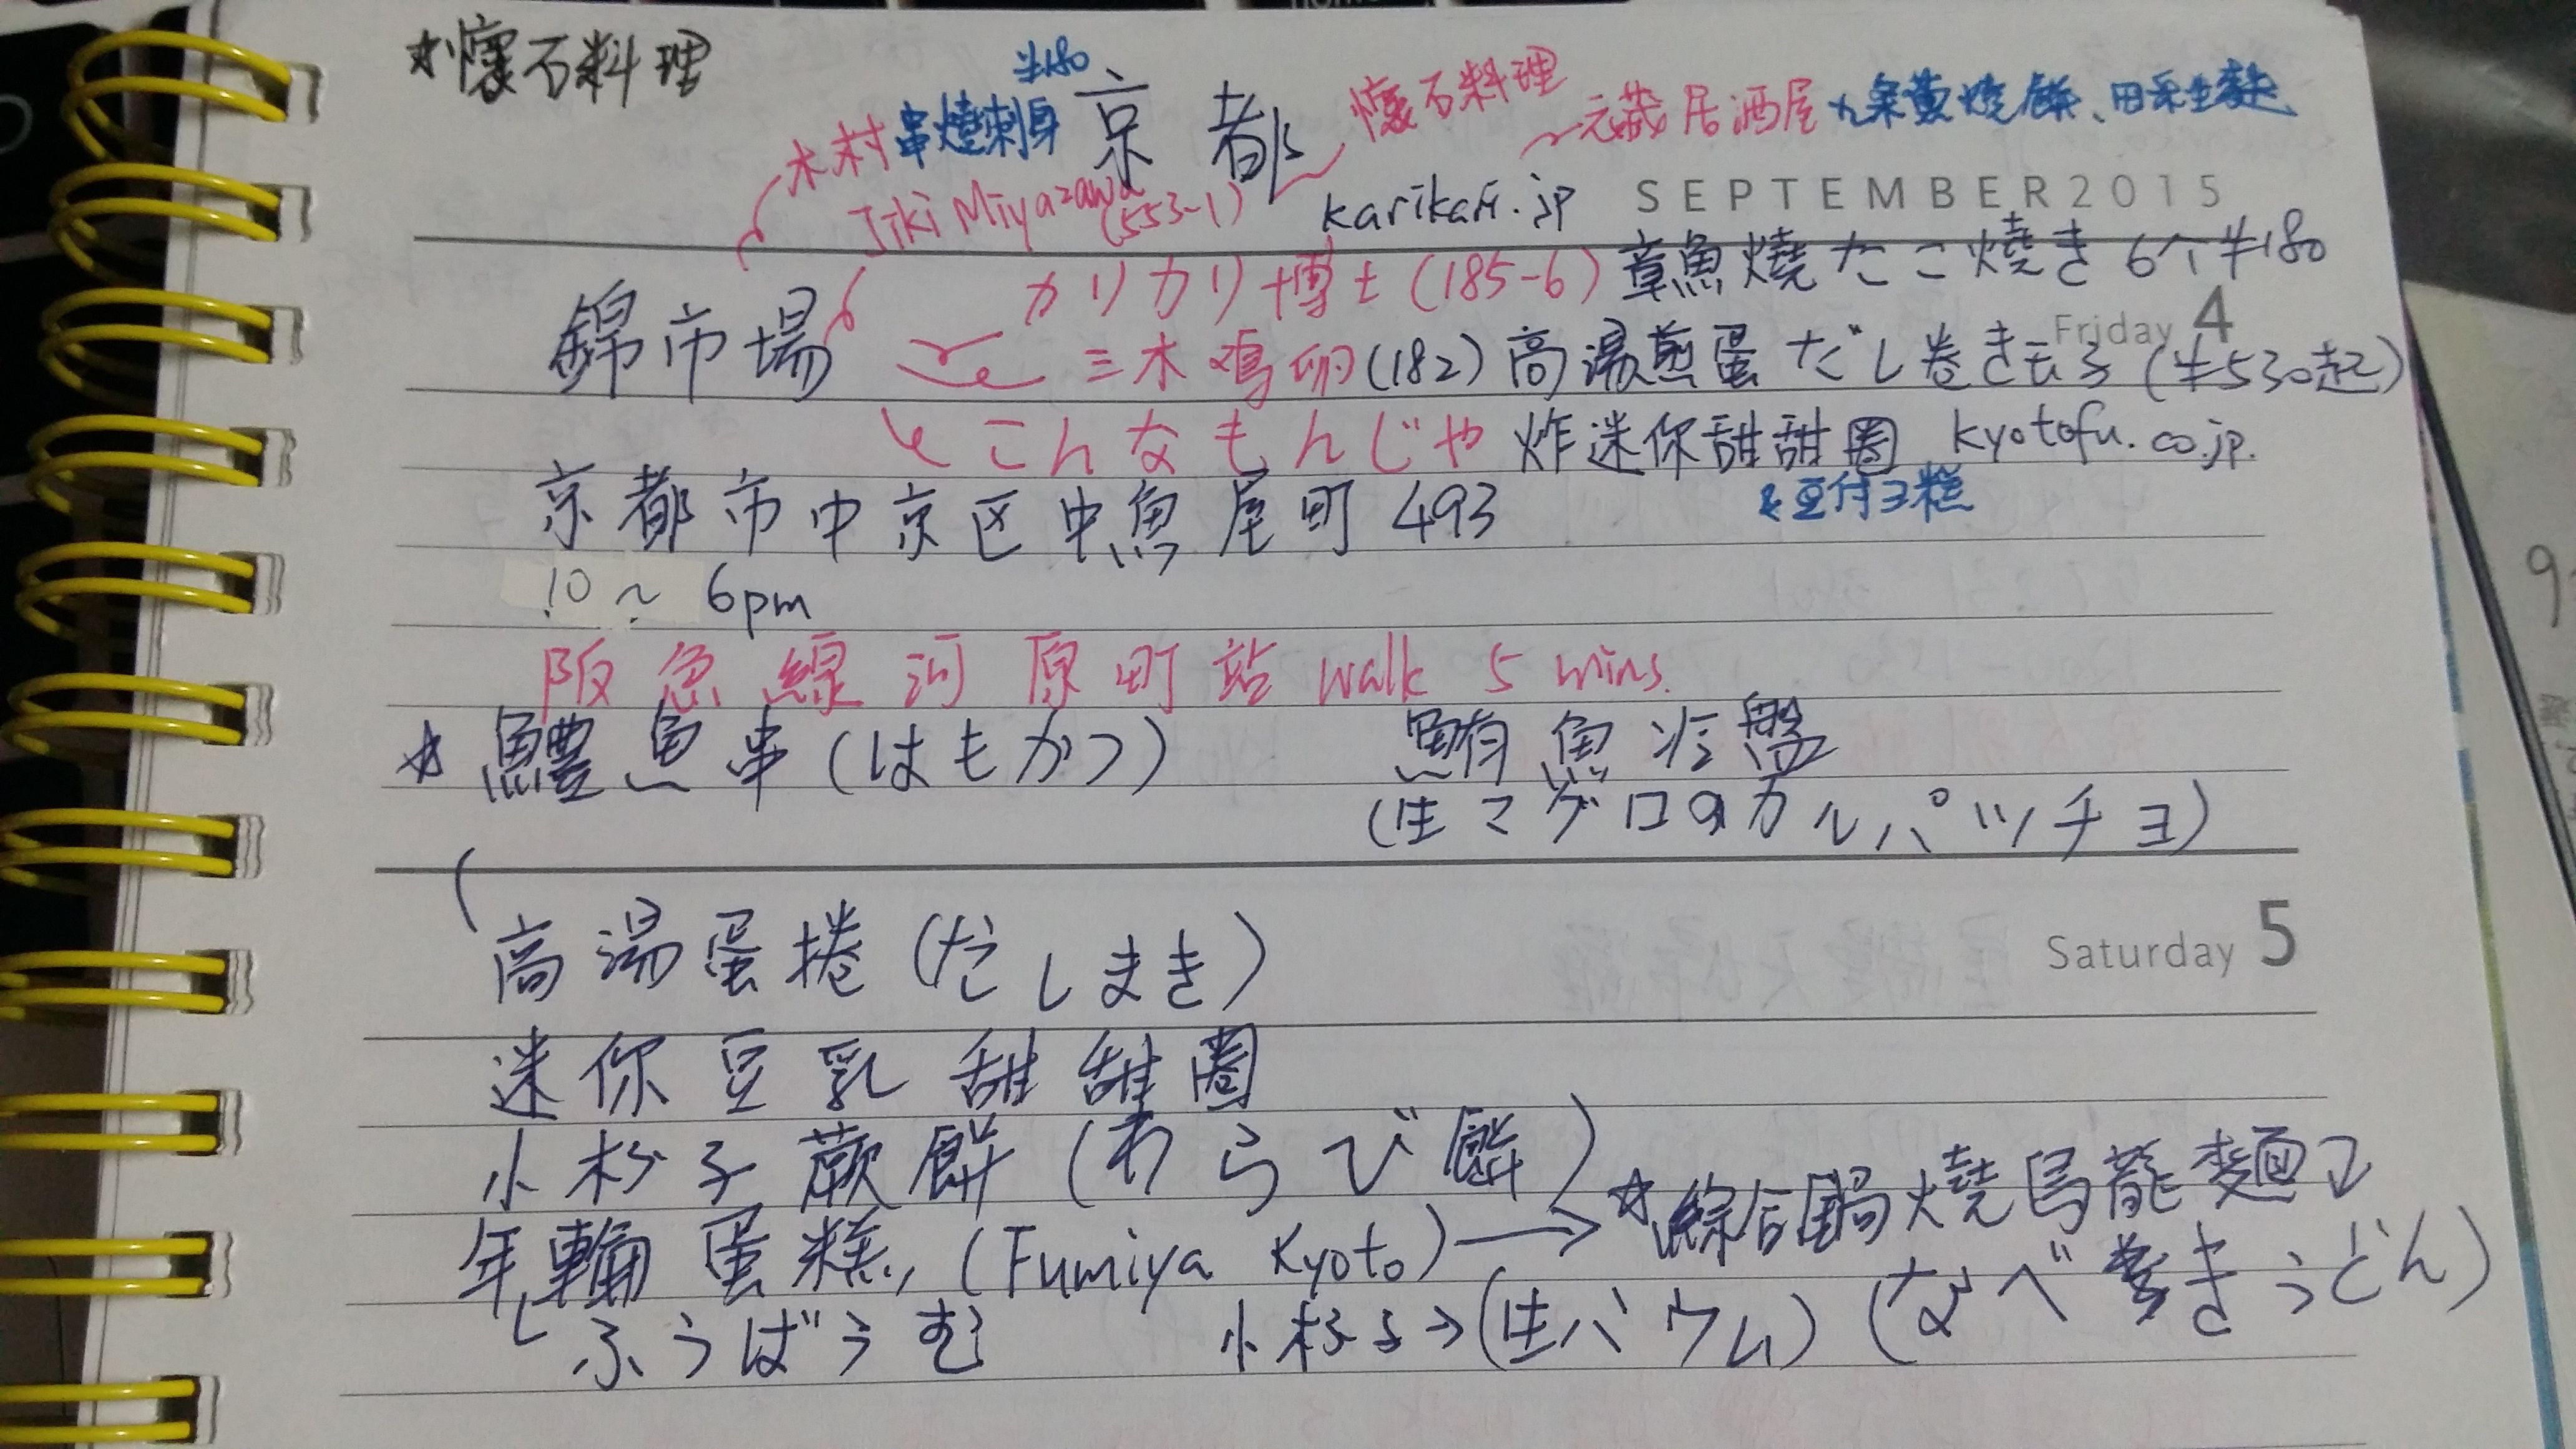 ☆懷石料理
半180
木村 串燒刺身 京都 懷石料理 元蔵居酒屋 九条葱燒餅、田楽生麩
Jiki Miyazawa (553-1) karikari.jp SEPTEMBER 2015
カリカリ博士 (185-6) 章魚燒 たこ燒き 6个 ¥180
錦市場 Friday 4
三木鸡卵 (182) 高湯煎蛋 だし巻き玉子 (¥530起)
こんなもんじゃ 炸迷你甜甜圈 kyotofu.co.jp.
京都市中京区中魚屋町 493
10 ~ 6pm
阪急線河原町站 walk 5 mins.
☆ 鱧魚串 (はもかつ) 鮪魚冷盤
(生マグロのカルパッチョ)
高湯蛋捲 (だしまき)
Saturday 5
迷你豆乳甜甜圈
小杉子蕨餅 (わらび餅)
☆綜合鍋燒烏龍麵
年輪蛋糕 (Fumiya Kyoto) →
(なべ き うどん)
ふうばうむ 小杉子→ (生バウム)